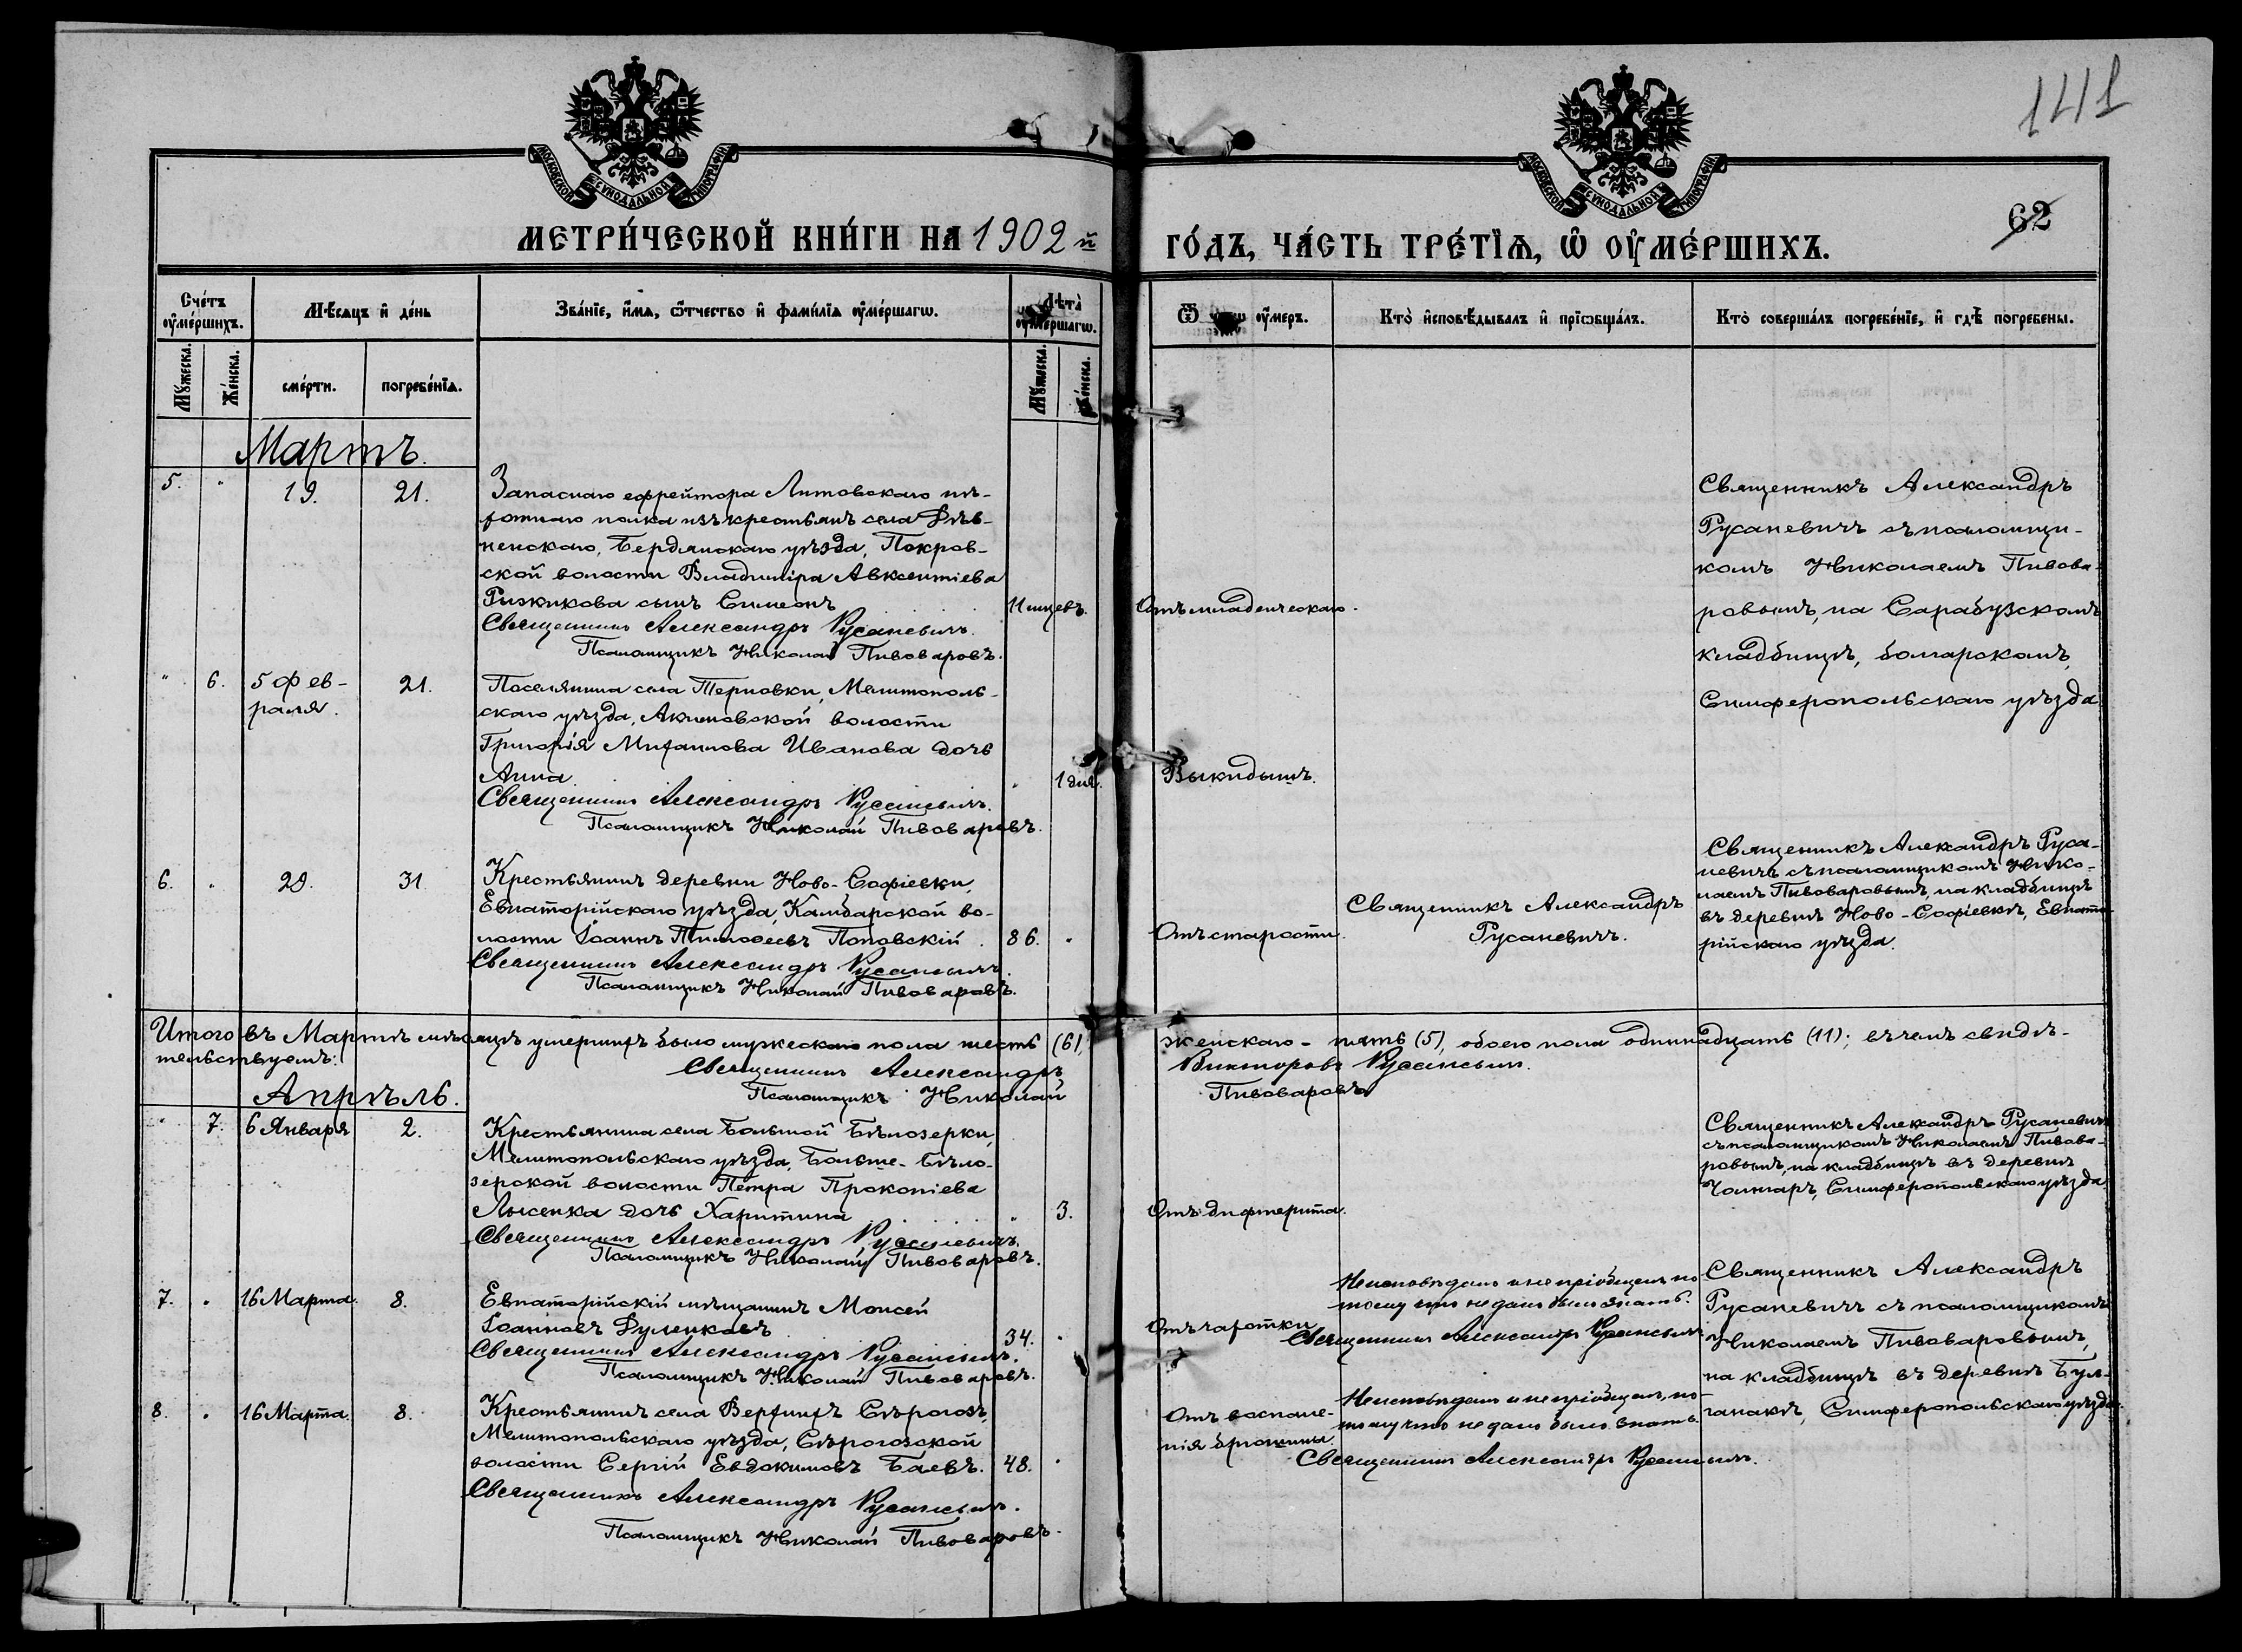 141
62
МОСКОВСКОЙ СѴНОДАЛЬНОЙ ТИПОГРАФІИ
МОСКОВСКОЙ СѴНОДАЛЬНОЙ ТИПОГРАФІИ
МЕТРИ́ЧЕСКОЙ КНИ́ГИ НА 1902 й
ГО́ДЪ, ЧА́СТЬ ТРЕ́ТІѦ, Ѡ ОУ҆МЕ́РШИХЪ.
Сче́тъ оу҆ме́ршихъ.
Мѣсяцъ и҆ де́нь
Зва́нїе, и҆́мѧ, ѻ҆́тчество и҆ фами́лїѧ оу҆ме́ршагѡ.
Лѣта̀ оу҆ме́ршагѡ.
Мꙋ́жеска.
Же́нска.
сме́рти.
погребе́нїѧ.
Мꙋ́жеска.
Же́нска.
Ѿ оу҆́меръ.
Кто̀ и҆сповѣ́дывалъ и҆ прїѡбща́лъ.
Кто̀ соверша́лъ погребе́нїе, и҆ гдѣ̀ погребены.
Мартъ.
5. " 19. 21.
Запаснаго ефрейтора Литовскаго пѣ-
хотнаго полка изъ крестьянъ села Днѣ-
ненскаго, Бердянскаго уѣзда, Покров-
ской волости Владиміра Авксентіева
Рижикова сынъ Симеонъ 11 мцевъ.
Священникъ Александръ Русаневичъ.
Псаломщикъ Николай Пивоваровъ.
Отъ младенческаго.
Священникъ Александръ
Русаневичъ съ псаломщи-
комъ Николаемъ Пивова-
ровымъ, на Сарабузскомъ
кладбищѣ, болгарскомъ,
Симферопольскаго уѣзда.
" 6. 5 фев-
раля. 21.
Поселянина села Терновки, Мелитополь-
скаго уѣзда, Акимовской волости
Григорія Михаилова Иванова дочь
Анна. " 1 дня.
Священникъ Александръ Русаневичъ.
Псаломщикъ Николай Пивоваровъ.
Выкидышъ.
6. " 29. 31
Крестьянинъ деревни Ново-Софіевки,
Евпаторійскаго уѣзда, Камбарской во-
лости Іоаннъ Тимофеевъ Поповскій. 86. "
Священникъ Александръ Русаневичъ.
Псаломщикъ Николай Пивоваровъ.
Отъ старости.
Священникъ Александръ
Русаневичъ.
Священникъ Александръ Руса-
невичъ съ псаломщикомъ Нико-
лаемъ Пивоваровымъ, на кладбищѣ
въ деревнѣ Ново-Софіевкѣ, Евпато-
рійскаго уѣзда.
Итого въ Мартѣ мѣсяцѣ умершихъ было мужескаго пола шесть (6), женскаго - пять (5), обоего пола одиннадцать (11); въ чемъ свидѣ-
тельствуемъ:
Священникъ Александръ Викторовъ Русаневичъ.
Псаломщикъ Николай Пивоваровъ
Апрѣль.
" 7. 6 Января 2.
Крестьянина села Большой Бѣлозерки,
Мелитопольскаго уѣзда, Больше-Бѣло-
зерской волости Петра Прокопіева
Лысенка дочь Харитина " 3.
Священникъ Александръ Русаневичъ.
Псаломщикъ Николай Пивоваровъ.
Отъ дифтерита.
Священникъ Александръ Русаневичъ
съ псаломщикомъ Николаемъ Пивова-
ровымъ, на кладбищѣ въ деревнѣ
Чонгаръ, Симферопольскаго уѣзда.
7. " 16 Марта. 8.
Евпаторійскій мѣщанинъ Моисей
Іоанновъ Дуленковъ 34. "
Священникъ Александръ Русаневичъ.
Псаломщикъ Николай Пивоваровъ.
Отъ чахотки
Не исповѣданъ и не пріобщенъ по
тому что не дано было знать.
Священникъ Александръ Русаневичъ
Священникъ Александръ
Русаневичъ съ псаломщикомъ
Николаемъ Пивоваровымъ,
на кладбищѣ въ деревнѣ Бул-
ганакѣ, Симферопольскаго уѣзда.
8. " 16 Марта. 8.
Крестьянинъ села Верхнихъ Сѣрогозъ,
Мелитопольскаго уѣзда, Сѣрогозской
волости Сергій Евдокимовъ Баевъ. 48. "
Священникъ Александръ Русаневичъ.
Псаломщикъ Николай Пивоваровъ.
Отъ воспале-
нія брюшины.
Не исповѣданъ и не пріобщенъ, по-
тому что не дано было знать.
Священникъ Александръ Русаневичъ.